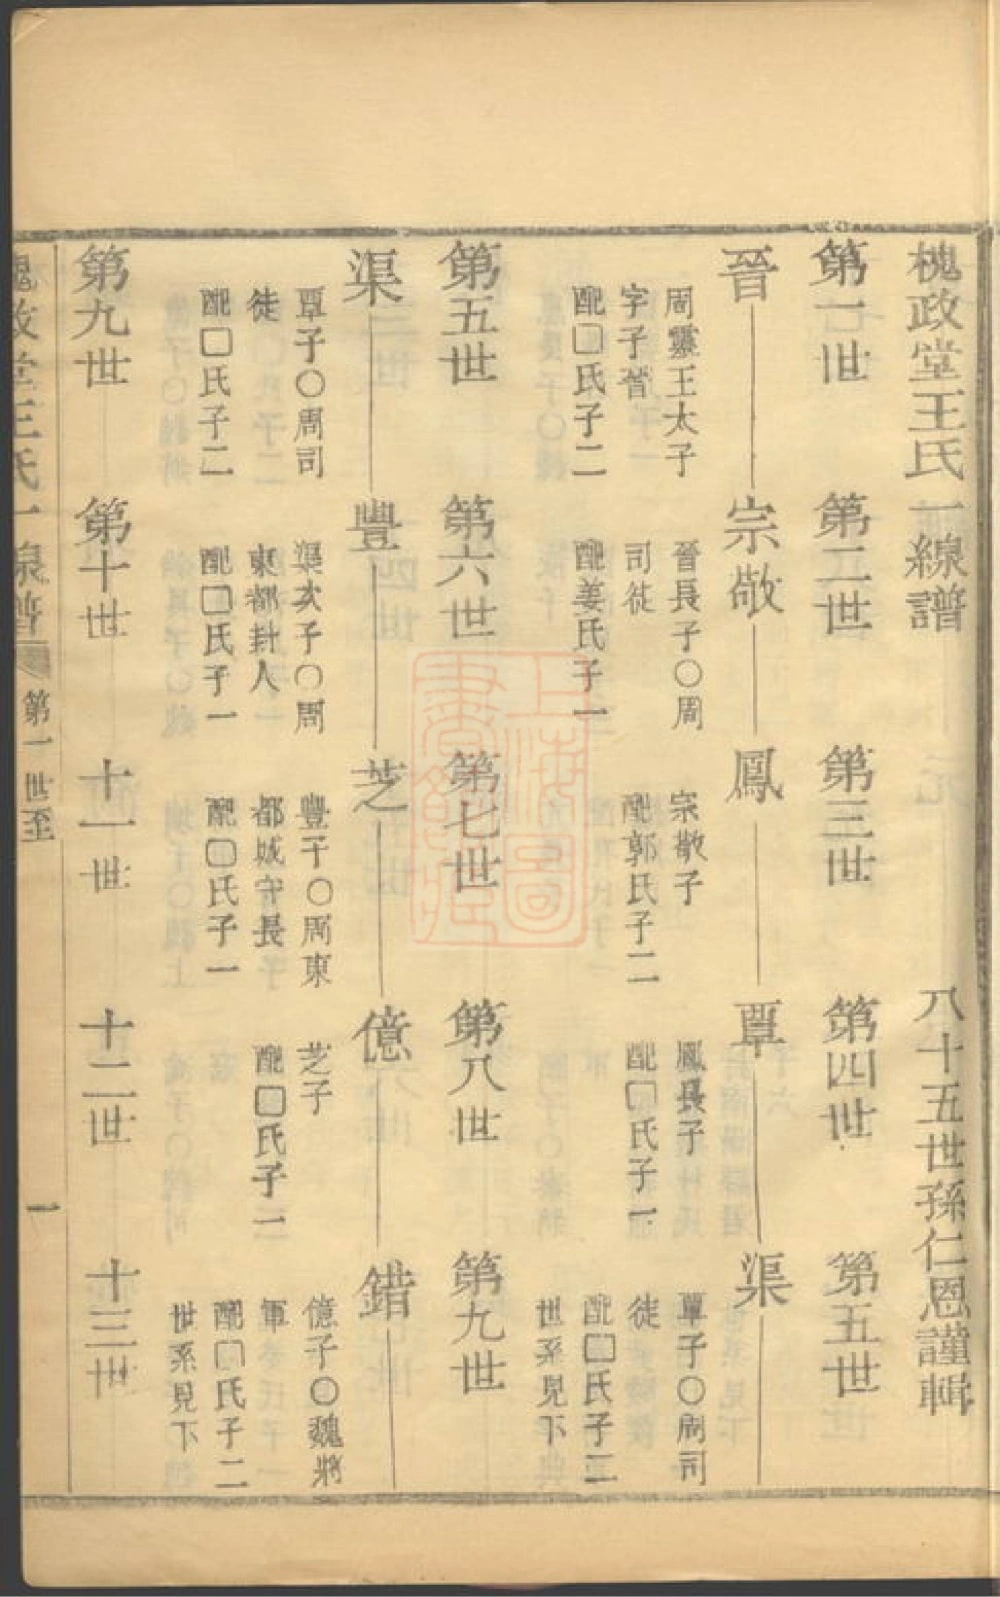 槐政堂王氏一線譜 八十五世孫仁恩謹輯
第一世 第二世 第三世 第四世 第五世
晉 宗敬 鳳 覃 渠
周靈王太子
字子晉
配□氏子二
晉長子○周
司徒
配姜氏子一
宗敬子
配郭氏子二
鳳長子
配□氏子一
覃子○周司
徒
配□氏子二
世系見下
第五世 第六世 第七世 第八世 第九世
渠 豐 芝 億 錯
覃子○周司
徒
配□氏子二
渠次子○周
東都封人
配□氏子一
豐子○周東
都城守長
配□氏子一
芝子
配□氏子一
億子○魏將
軍
配□氏子二
世系見下
第九世 第十世 十一世 十二世 十三世
槐政堂王氏一線譜 第一世至 一
上海圖書館藏